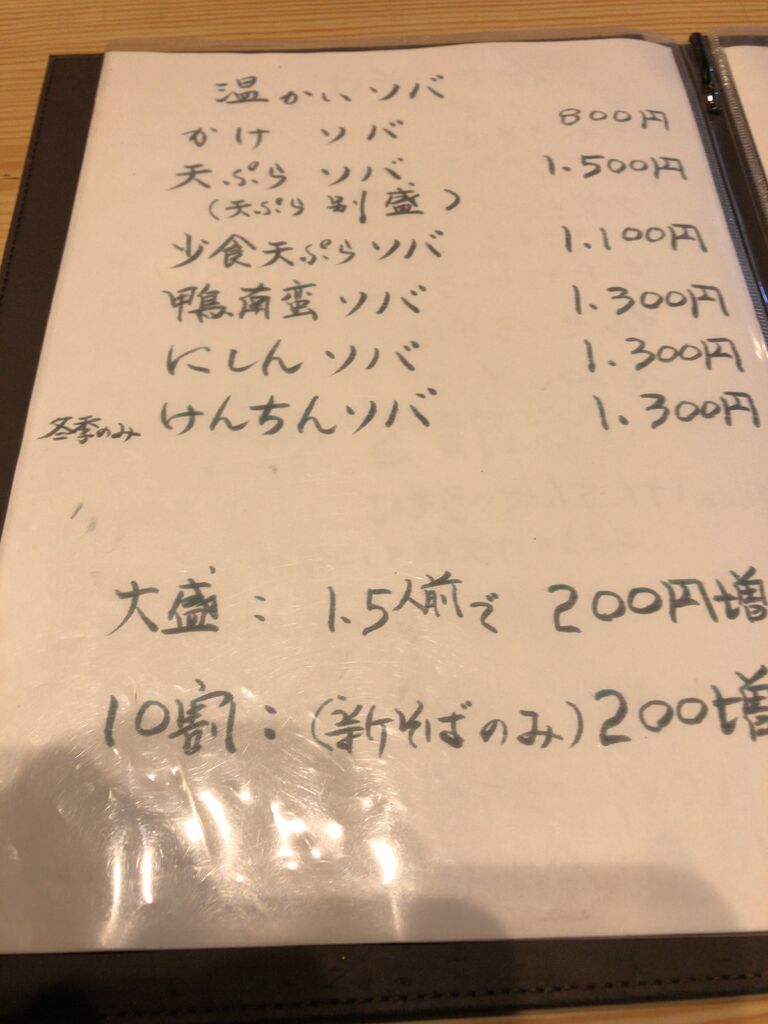 温かいソバ
かけ ソバ 800円
天ぷら ソバ 1.500円
(天ぷら別盛)
少食天ぷらソバ 1.100円
鴨南蛮ソバ 1.300円
にしんソバ 1.300円
冬季のみ けんちんソバ 1.300円
大盛: 1.5人前で 200円増
10割: (新そばのみ) 200増